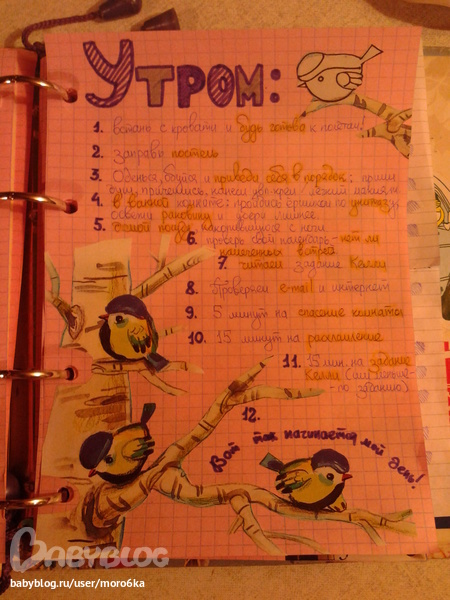 Утром:
1. встань с кровати и будь готова к полетам!
2. заправь постель
3. Оденься, обуйся и приведи себя в порядок: прими
душ, причешись, нанеси
4. в ванной комнате: пройдись ёршиком по унитазу,
освежи раковину и убери лишнее.
5. Помой посуду, накопившуюся с ночи
6. проверь свой календарь - нет ли
намеченных встреч
7. читаем задание Келли
8. Проверяем e-mail и интернет
9. 5 минут на спасение комнаты
10. 15 минут на расхламление
11. 15 мин. на задание
Келли
12.
Вот так начинается мой
день!
BABYBLOG
babyblog.ru/user/moro6ka